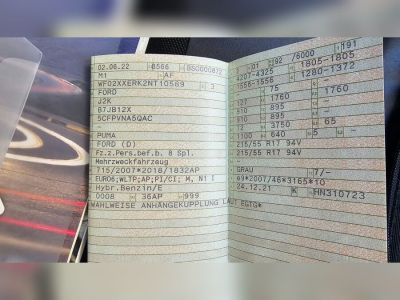 02.06.22 8566
M1 AF
WF02XXERK2NT10569 3
FORD
J2K
B7JB12X
5CFPVNA5QAC
PUMA
FORD (D)
Fz.z.Pers.bef.b. 8 Spl.
Mehrzweckfahrzeug
715/2007*2018/1832AP
EURO6;WLTP;AP;PI/CI; M, N1 I
Hybr.Benzin/E
0008 36AP 999
WAHLWEISE ANHÄNGEKUPPLUNG LAUT EGTG*
01 92 /6000 191
4207-4325 1805-1805
1536-1556 1280-1372
75 1760
910 895 1760
910 895 -
65 3750 65 5
1100 640 -
215/55 R17 94V
215/55 R17 94V
GRAU 7/-
69*2007/46*3165*10
24.12.21 K HN310723